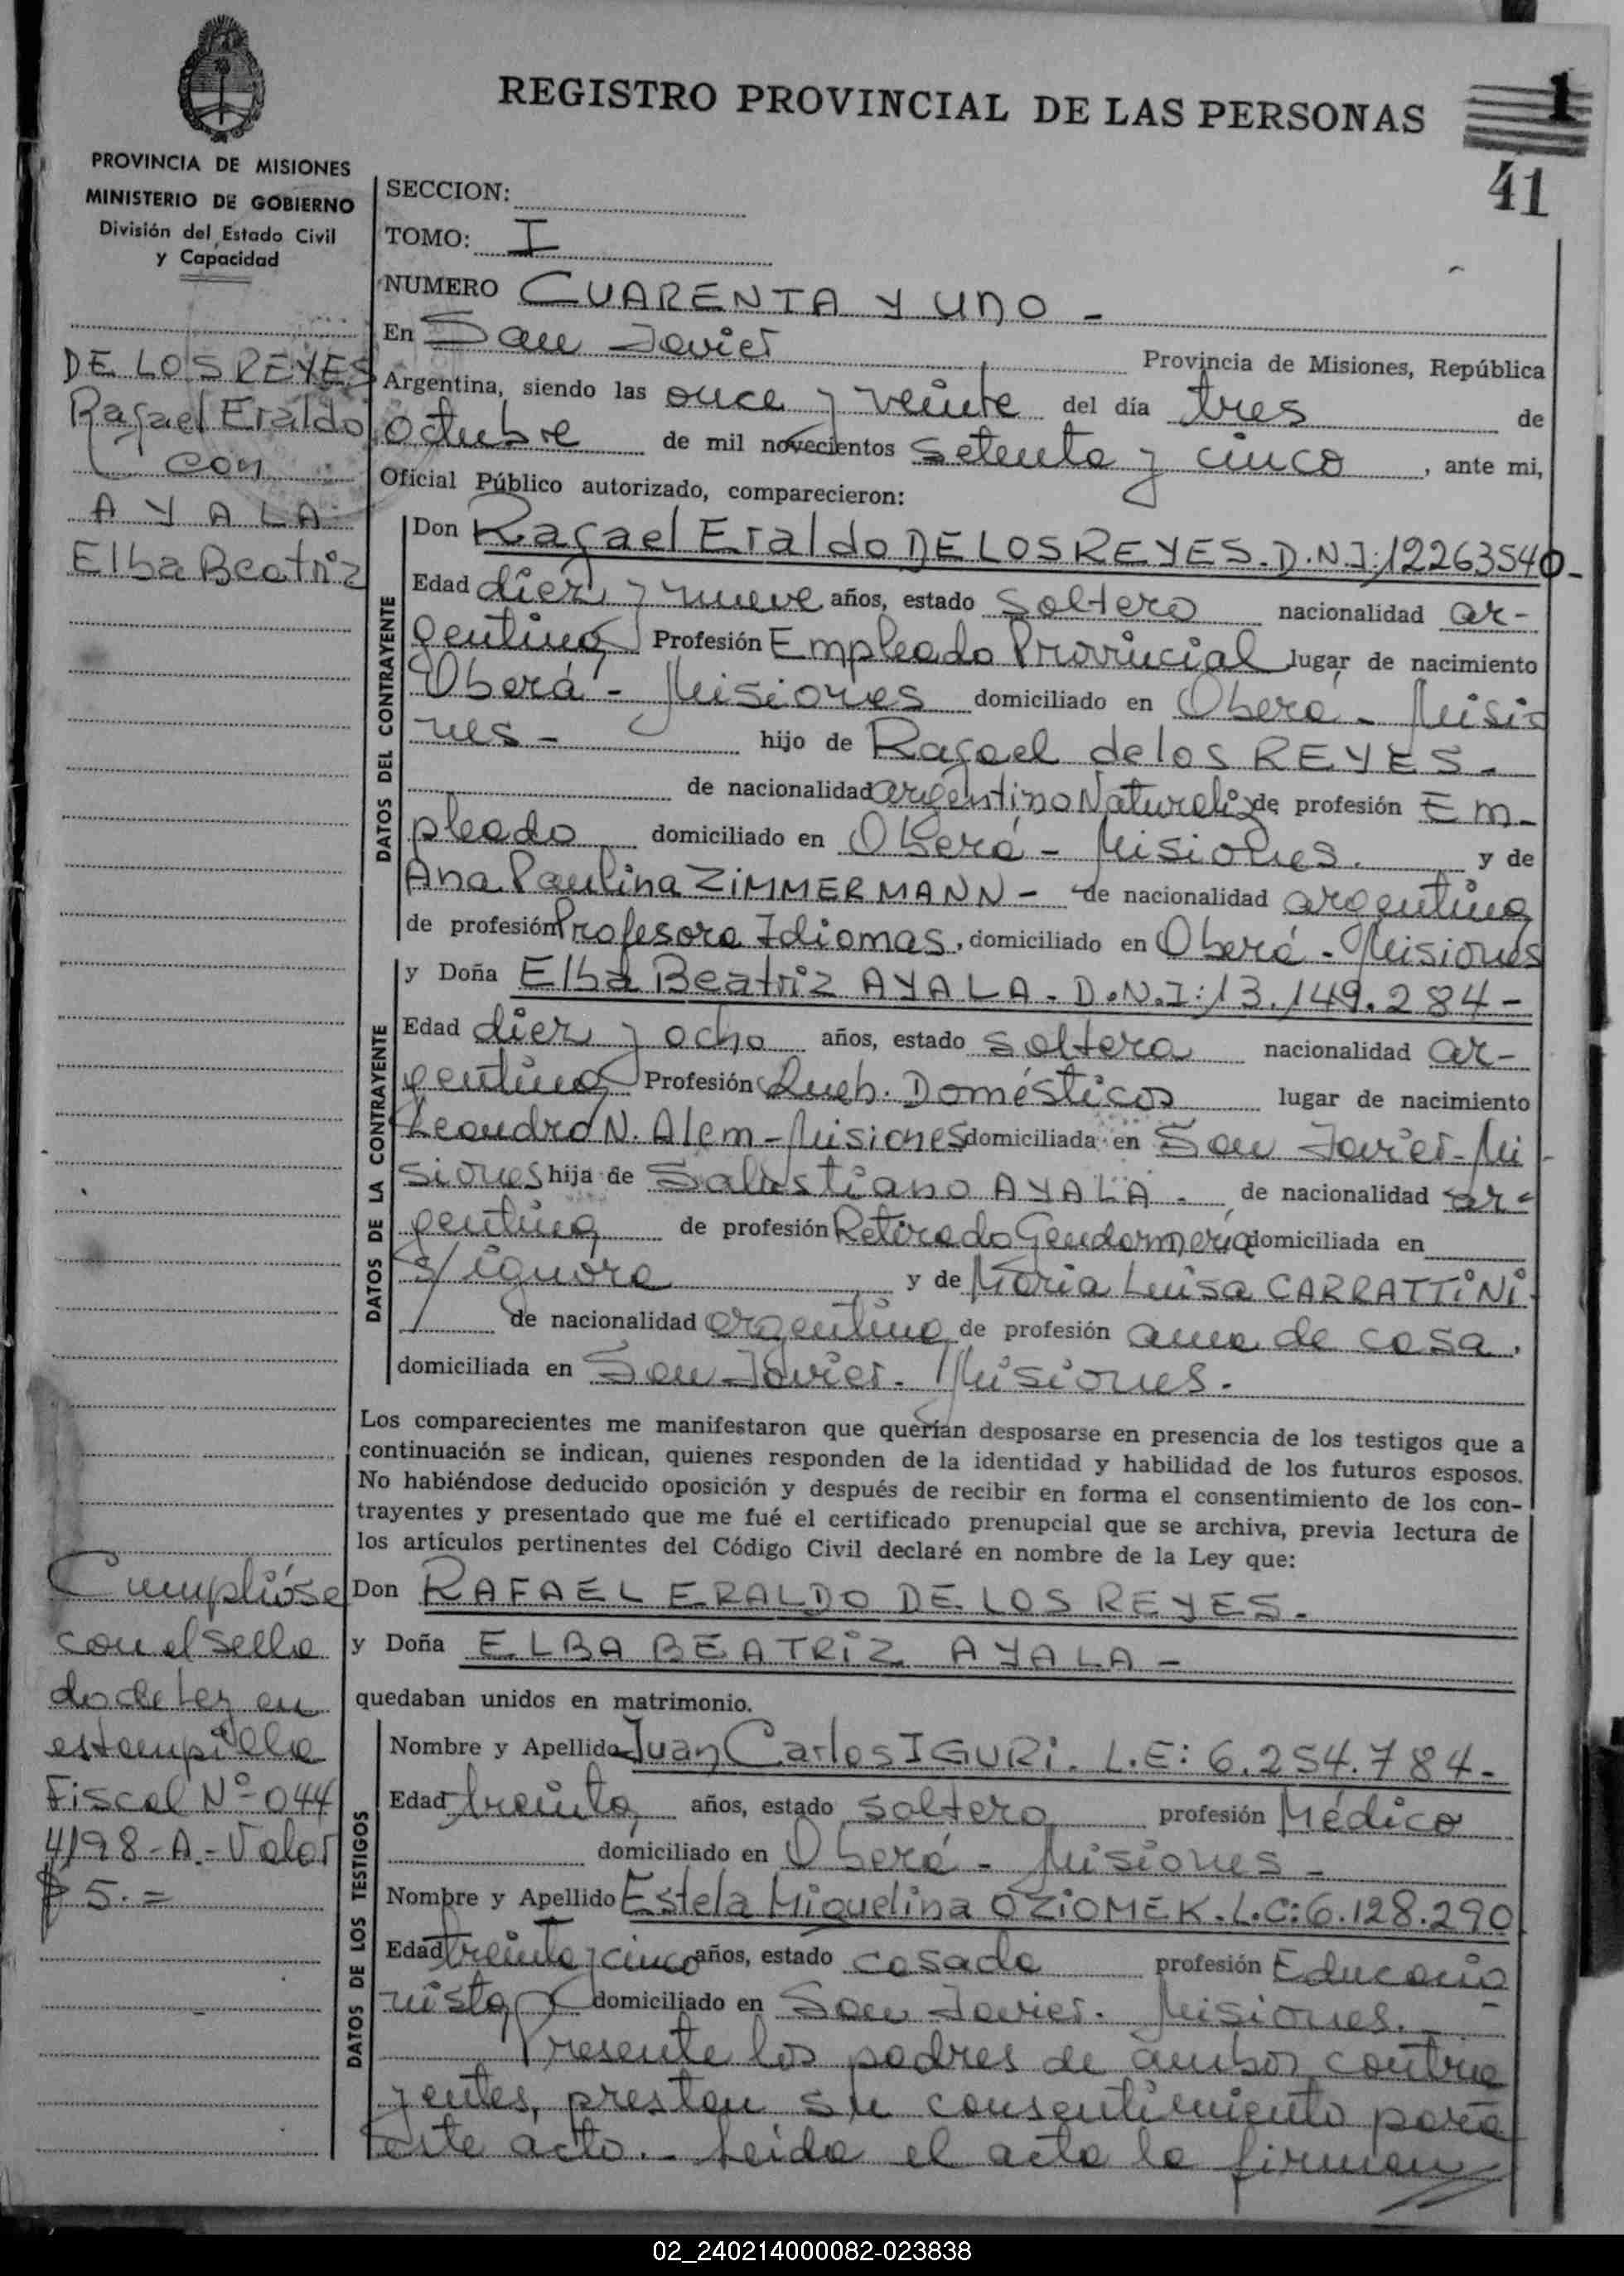 REGISTRO PROVINCIAL DE LAS PERSONAS
1
41
PROVINCIA DE MISIONES
MINISTERIO DE GOBIERNO
División del Estado Civil
y Capacidad
DE LOS REYES
Rafael Eraldo
con
AYALA
Elba Beatriz
SECCION:
TOMO: I
NUMERO CUARENTA Y UNO -
En San Javier Provincia de Misiones, República
Argentina, siendo las once y veinte del día tres de
octubre de mil novecientos setenta y cinco, ante mi,
Oficial Público autorizado, comparecieron:
DATOS DEL CONTRAYENTE
Don Rafael Eraldo DE LOS REYES. D.N.I: 12263540-
Edad diez y nueve años, estado soltero nacionalidad ar-
gentina Profesión Empleado Provincial lugar de nacimiento
Oberá - Misiones domiciliado en Oberá - Misio
nes - hijo de Rafael de los REYES -
de nacionalidad argentino Naturaliz de profesión Em-
pleado domiciliado en Oberá - Misiones. y de
Ana Paulina ZIMMERMANN - de nacionalidad argentina
de profesión Profesora Idiomas, domiciliado en Oberá - Misiones
DATOS DE LA CONTRAYENTE
y Doña Elba Beatriz AYALA - D.N.I: 13.149.284-
Edad diez y ocho años, estado soltera nacionalidad ar-
gentina Profesión Queh. Domésticos lugar de nacimiento
Leandro N. Alem - Misiones domiciliada en San Javier - Mi
siones hija de Salustiano AYALA - de nacionalidad ar-
gentina de profesión Retirado Gendarmería domiciliada en
S/ignora y de María Luisa CARRATTINI
de nacionalidad argentina de profesión ama de casa.
domiciliada en San Javier. Misiones.
Los comparecientes me manifestaron que querían desposarse en presencia de los testigos que a
continuación se indican, quienes responden de la identidad y habilidad de los futuros esposos.
No habiéndose deducido oposición y después de recibir en forma el consentimiento de los con-
trayentes y presentado que me fué el certificado prenupcial que se archiva, previa lectura de
los artículos pertinentes del Código Civil declaré en nombre de la Ley que:
Don RAFAEL ERALDO DE LOS REYES.
y Doña ELBA BEATRIZ AYALA -
quedaban unidos en matrimonio.
Cumplióse
con el sella
do de ley en
estampilla
Fiscal Nº 044
4198-A.- Valor
$ 5.=
DATOS DE LOS TESTIGOS
Nombre y Apellido Juan Carlos IGURI. L.E: 6.254.784-
Edad treinta años, estado soltero profesión Médico
domiciliado en Oberá - Misiones -
Nombre y Apellido Estela Miquelina OZIOMEK. L.C: 6.128.290
Edad treinta y cinco años, estado casada profesión Educacio
nista domiciliado en San Javier. Misiones.
Presente los padres de ambos contra
yentes, prestan su consentimiento para
este acto. - Leída el acta la firman
02_240214000082-023838